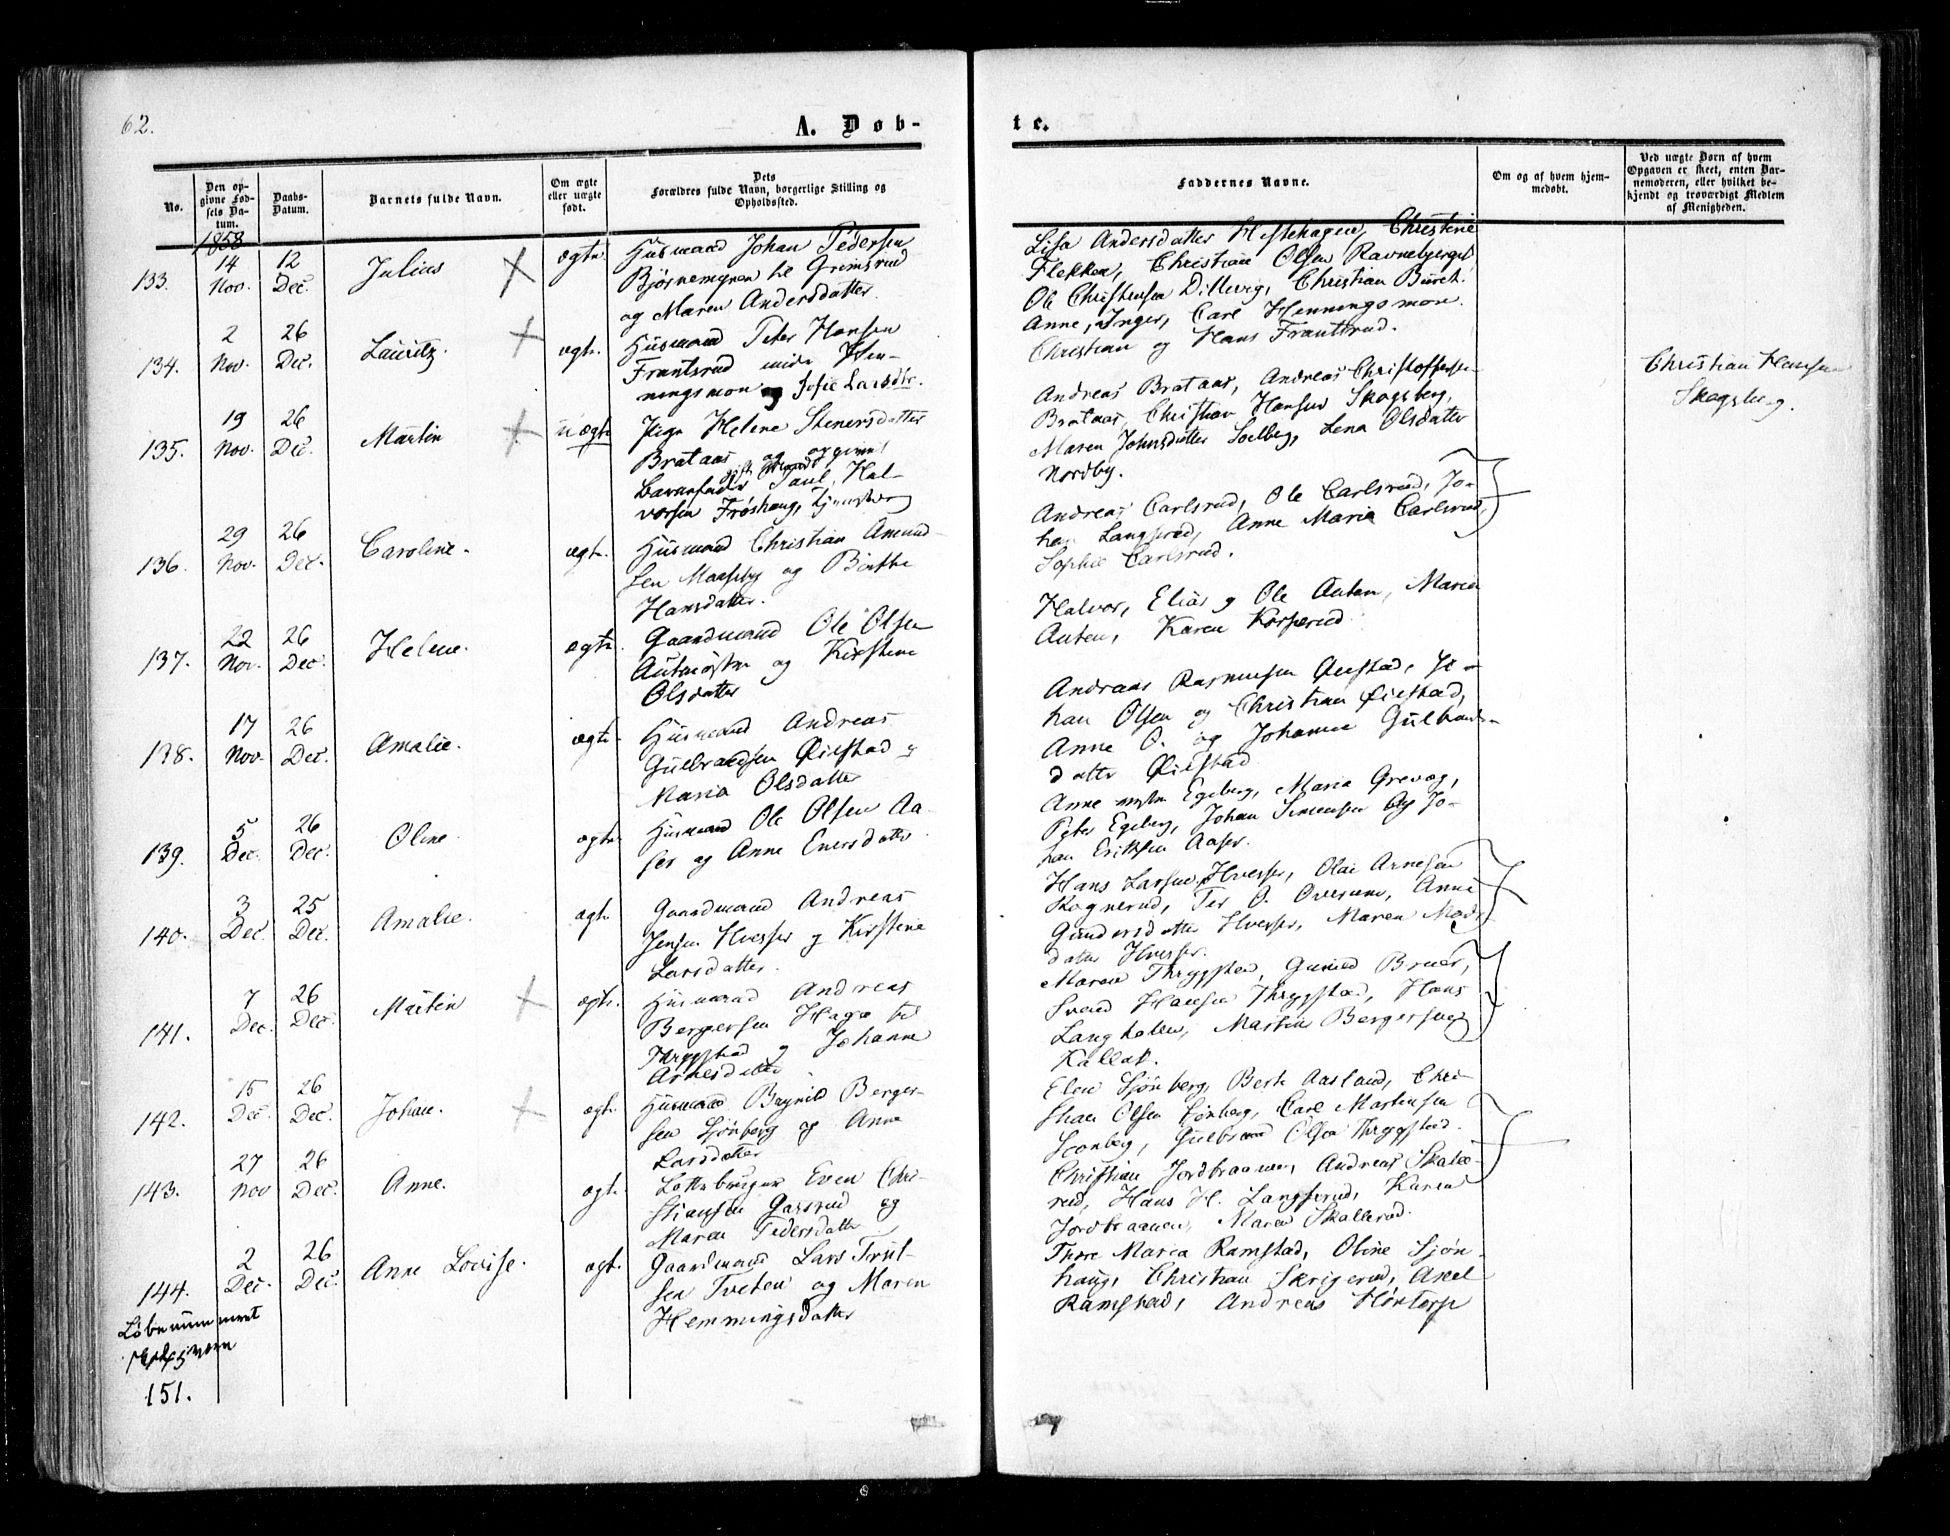 62.
A. Døb-
te.
No.
Den opgivne Fødsels Datum.
Daabs-Datum.
Barnets fulde Navn.
Om ægte eller uægte født.
Dets Forældres fulde Navn, borgerlige Stilling og Opholdssted.
Faddernes Navne.
Om og af hvem hjemmedøbt.
Ved uægte Børn af hvem Opgaven er skeet, enten Barnemoderen, eller hvilket bekjendt og troværdigt Medlem af Menigheden.
1858
133.
14 Nov.
12 Dec.
Julius
ægte
Husmand Johan Pedersen
Bjørnemyren til Grimsrud
og Maren Andersdatter.
Lisa Andersdatter Hestehagen, Christine
Flekken, Christian Olsen Ravnebjerget
Ole Christensen Dilling, Christian
134.
2 Nov.
26 Dec.
Lauritz.
ægte.
Husmand Peter Hansen
Frantsrud under Hen-
ningsmon og Sofie Larsdtr.
Anne, Inger, Carl Henningsmon.
Christian og Hans Frantsrud.
135.
19 Nov.
26 Dec.
Martin
uægte
Pige Helene Stenersdatter
Brataas og opgiven
Barnefader Paul Hal-
vorsen Frøshaug,
Andreas Brataas, Andreas Christoffersen
Brataas, Christian Hansen Skogsberg,
Maren Johnsdatter Solberg, Lena Olsdatter
Nordby.
Christian Hansen
Skogsberg.
136.
29 Nov.
26 Dec.
Caroline.
ægte.
Husmand Christian Amund-
sen og
Hansdatter.
Andreas Carlsrud, Ole Carlsrud, Jo-
han Langsrud, Anne Maria Carlsrud,
Sophie Carlsrud.
137.
22 Nov.
26 Dec.
Helene.
ægte.
Gaardmand Ole Olsen
og Kirstine
Olsdatter
Halvor, Elias og Ole Auten, Maria
Auten, Karen
138.
17 Nov.
26 Dec.
Amalie.
ægte.
Husmand Andreas
Gulbrandsen Øiestad og
Maria Olsdatter
Andreas Rasmusen Øiestad, Jo-
han Olsen og Christian Øiestad,
Anne O. og Johanne Gulbrands-
datter Øiestad
139.
5 Dec.
26 Dec.
Oline
ægte.
Husmand Ole Olsen Aa-
ser og Anne Enersdatter
Anne Egeberg, Maria Grevog,
Peter Egeberg, Johan Simensen og Jo-
han Eriksen Aaser.
140.
3 Dec.
25 Dec.
Amalie.
ægt.
Gaardmand Andreas
Jensen Huesser og Kirstine
Larsdatter.
Hans Larsen Huesser, Olai Arnesen
Rognerud, Per O. Oversum, Anne
Gundersdatter Huesser, Maren Mads-
datter Huesser.
141.
7 Dec.
26 Dec.
Martin
ægte.
Husmand Andreas
Bergersen Haga til
Thrygstad og Johanne
Arnesdatter
Maren Thrygstad, Gunild Bruer,
Svend Hansen Thrygstad, Hans
Langholen, Martin Bergersen
Kallak.
142.
15 Dec.
26 Dec.
Johan.
ægt.
Husmand Bernt Berger-
sen Sjønberg og Anne
Larsdatter
Elen Sjønberg, Berte Aasland, Chri-
stian Olsen Sjønberg, Carl Martinsen
Sconberg, Gulbrand Olsen Thrygstad.
143.
27 Nov
26 Dec.
Anne.
ægt.
Even Chri-
stiansen Gaasrud og
Maren Pedersdatter
Christian Jordbraanen, Andreas Skalle-
rud, Hans H. Langsrud, Karen
Jordbraanen, Maren Skallerud.
144.
2 Dec.
26 Dec.
Anne Lovise.
ægt.
Gaardmand Lars
sen Tveten og Maren
Hemmingsdatter
Thore Maria Ramstad, Oline Sjøn-
haug, Christian Skrigerud, Axel
Ramstad, Andreas Høntorp
Løbenummeret
151.